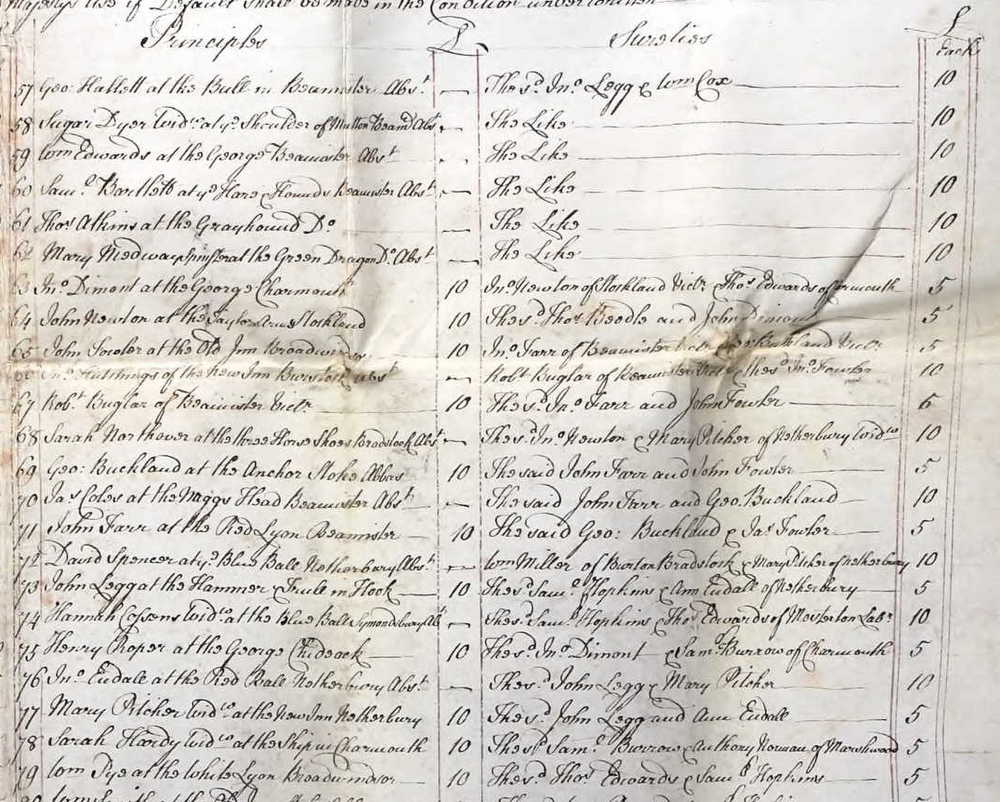 Majestys Use if Default shall be made in the Condition underwritten
Principles £ Sureties £ Each
57 Geo: Hallett at the Bull in Beamister Abst. — The sd. Jno. Legg & Wm Cox 10
58 Sugar Dyer Widw at ye. Shoulder of Mutton Beamr Abst — The Like 10
59 Wm Edwards at the George Beamister Abst — The Like 10
60 Saml. Bartlett at ye Hare & Hounds Beamister Abst — The Like 10
61 Thos Atkins at the Grayhound Do — The Like 10
62 Mary Medway Spinster at the Green Dragon Do. Abst — The Like 10
63 Jno. Dimont at the George Charmouth 10 Jno Newton of Stokland Victr & Thos Edwards of Charmouth 5
64 John Newton at the Taylors Arms Stokland 10 The sd. Thos Beadle and John Dimont 5
65 John Fowler at the Old Inn Broadwindsor 10 Jno. Farr of Beamister Victr Buckland Victr 5
66 Jno. Hutchings of the New Inn Burstock Abst — Robt Buglar of Beamister Vict & the sd Jno. Fowler 10
67 Robt. Buglar of Beamister Victr 10 The sd. Jno. Farr and John Fowler 5
68 Sarah Northover at the three Horse Shoes Bradstock Abst — The sd. Jno. Newton & Mary Pitcher of Netherbury Widw 10
69 Geo: Buckland at the Anchor Stoke Abbas 10 The said John Farr and John Fowler 5
70 Jas Coles at the Naggs Head Beamister Abst — The said John Farr and Geo. Buckland 10
71 John Farr at the Red Lyon Beamister 10 The said Geo: Buckland & Jas Fowler 5
72 David Spencer at ye Blue Ball Netherbury Abst. — Wm Miller of Burton Bradstock & Mary Pitcher of Netherbury 10
73 John Legg at the Hammer & Frull in Hook 10 The sd Saml. Hopkins & Ann Eudall of Netherbury 5
74 Hannah Cossens Widw. at the Blue Ball Symondsbury Abt — The sd. Saml. Hopkins & Thos Edwards of Mosterton Labr 10
75 Henry Roper at the George Chideock 10 The sd. Jno. Dimont & Saml Burrow of Charmouth 5
76 Jno. Eudall at the Red Ball Netherbury Abst. — The sd. John Legg & Mary Pitcher 10
77 Mary Pitcher Widw. at the New Inn Netherbury 10 The sd. John Legg and Ann Eudall 5
78 Sarah Hardy Widw. at the Ship in Charmouth 10 The sd Saml. Burrow & Anthony Norman of Marshwood 5
79 Wm Pye at the White Lyon Broadwindsor 10 The sd. Thos Edwards & Saml Hopkins 5